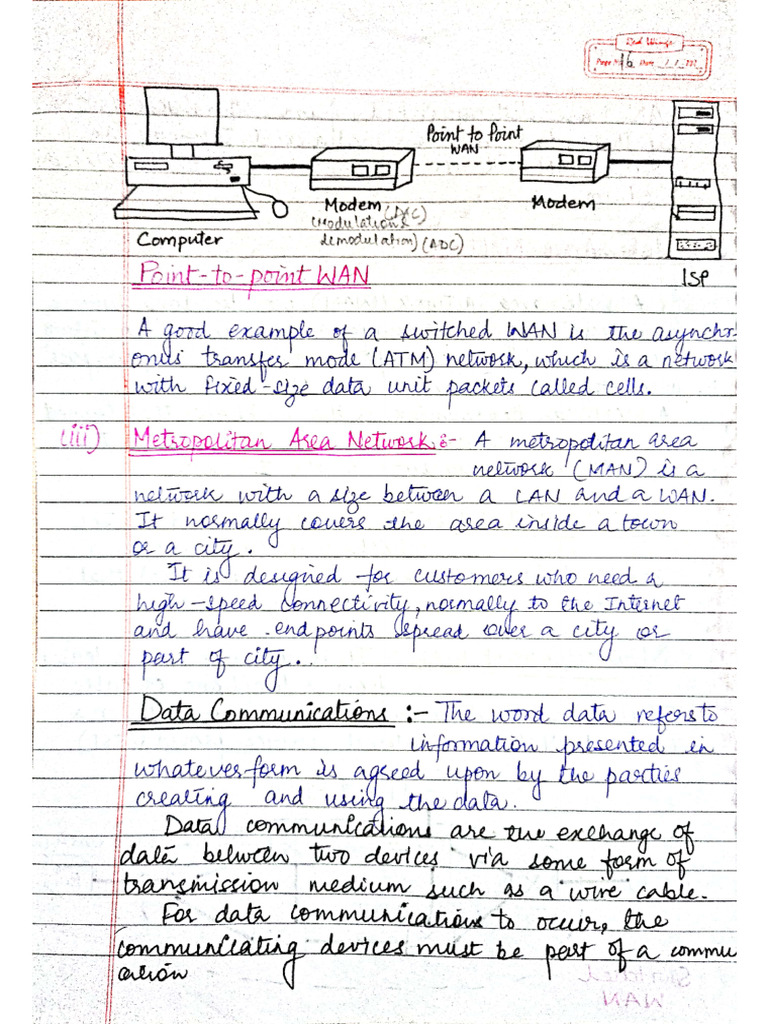 Red Wings
Page No. 16 Date _/_/202_
Point to Point
WAN
Modem (DAC)
(Modulation &
demodulation) (ADC)
Modem
Computer
ISP
Point-to-point WAN
A good example of a switched WAN is the asynchr-
onus transfer mode (ATM) network, which is a network
with fixed-size data unit packets called cells.
(iii) Metropolitan Area Network :- A metropolitan area
network (MAN) is a
network with a size between a LAN and a WAN.
It normally covers the area inside a town
or a city.
It is designed for customers who need a
high-speed connectivity, normally to the Internet
and have endpoints spread over a city or
part of city..
Data Communications :- The word data refers to
information presented in
whatever form is agreed upon by the parties
creating and using the data.
Data communications are the exchange of
data between two devices via some form of
transmission medium such as a wire cable.
For data communications to occur, the
communicating devices must be part of a commu
cation
WAN